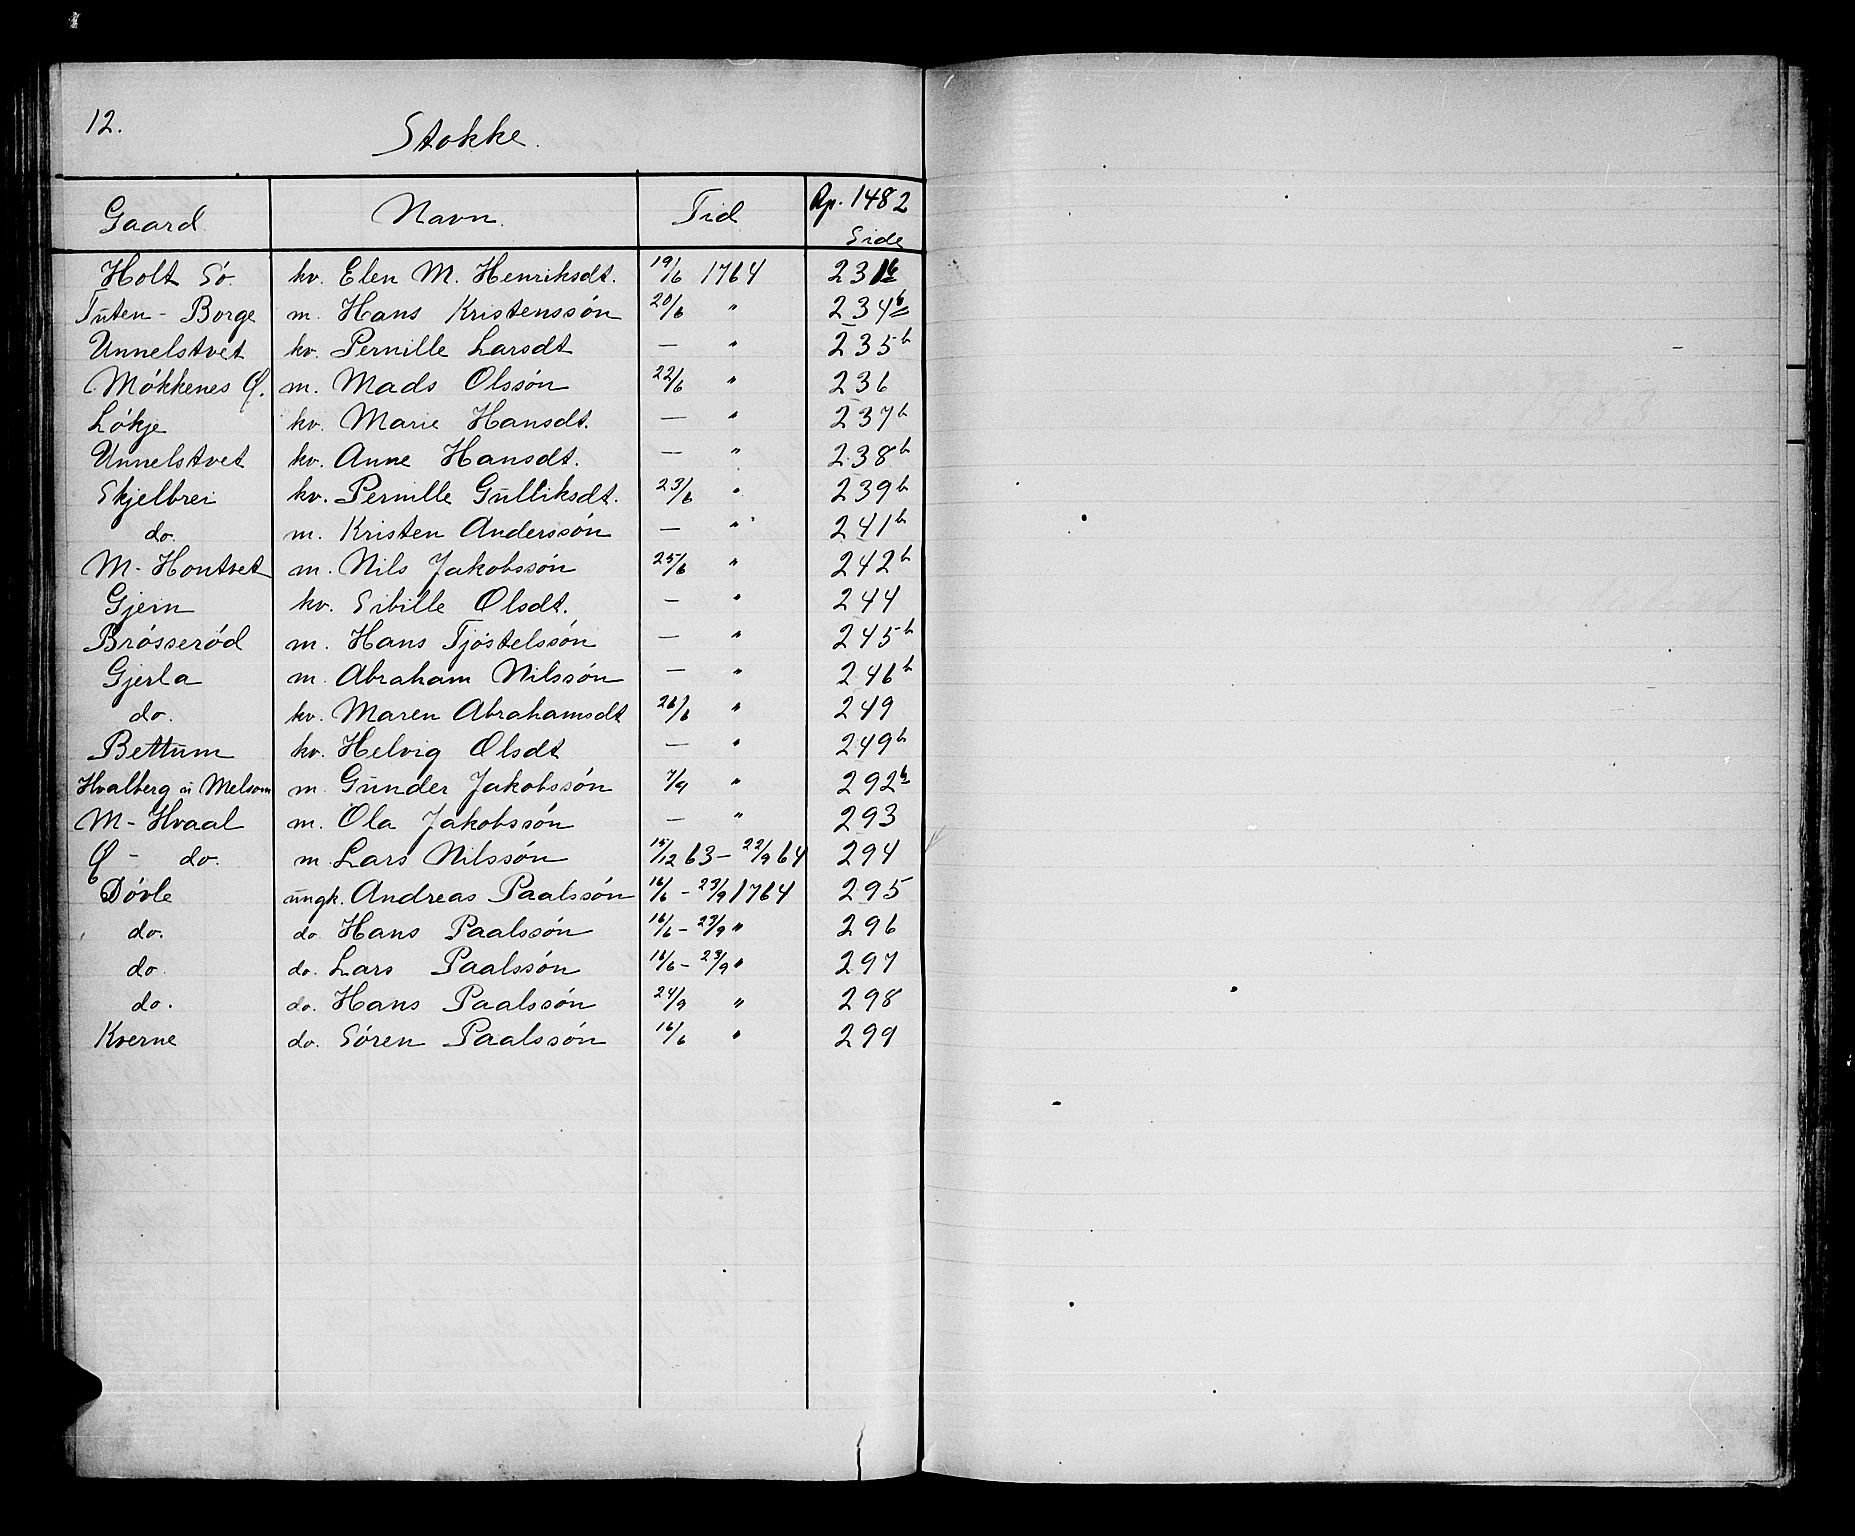 12.
Stokke.
Gaard Navn. Tid Rp. 1482 Side
Holt Sö. kv. Elen M. Henriksdt. 19/6 1764 231b
Tuten - Borge m. Hans Kristenssön 20/6 " 234b
Unnelstvet kv. Pernille Larsdt — " 235b
Mökkenes Ø. m. Mads Olssön 22/6 " 236
Lökje kv. Marie Hansdt. — " 237b
Unnelstvet kv. Anne Hansdt. — " 238b
Skjelbrei kv. Pernille Gulliksdt. 23/6 " 239b
do. m. Kristen Anderssön — " 241b
M - Hontvet m. Nils Jakobssön 25/6 " 242b
Gjein kv. Sibille Olsdt. — " 244
Brösseröd m. Hans Tjöstelssön — " 245b
Gjerla m. Abraham Nilssön — " 246b
do. kv. Maren Abrahamsdt 26/6 " 249
Bettum kv. Helvig Olsdt — " 249b
Hvalberg u Melsom m. Gunder Jakobssön 7/9 " 292b
M - Hvaal m. Ola Jakobssön — " 293
Ø - do. m. Lars Nilssön 15/12 63 - 22/9 64 294
Dövle ungk. Andreas Paalssön 16/6 - 23/9 1764 295
do. do. Hans Paalssön 16/6 - 23/9 " 296
do. do. Lars Paalssön 16/6 - 23/9 " 297
do. do. Hans Paalssön 24/9 " 298
Kverne do. Sören Paalssön 16/6 " 299